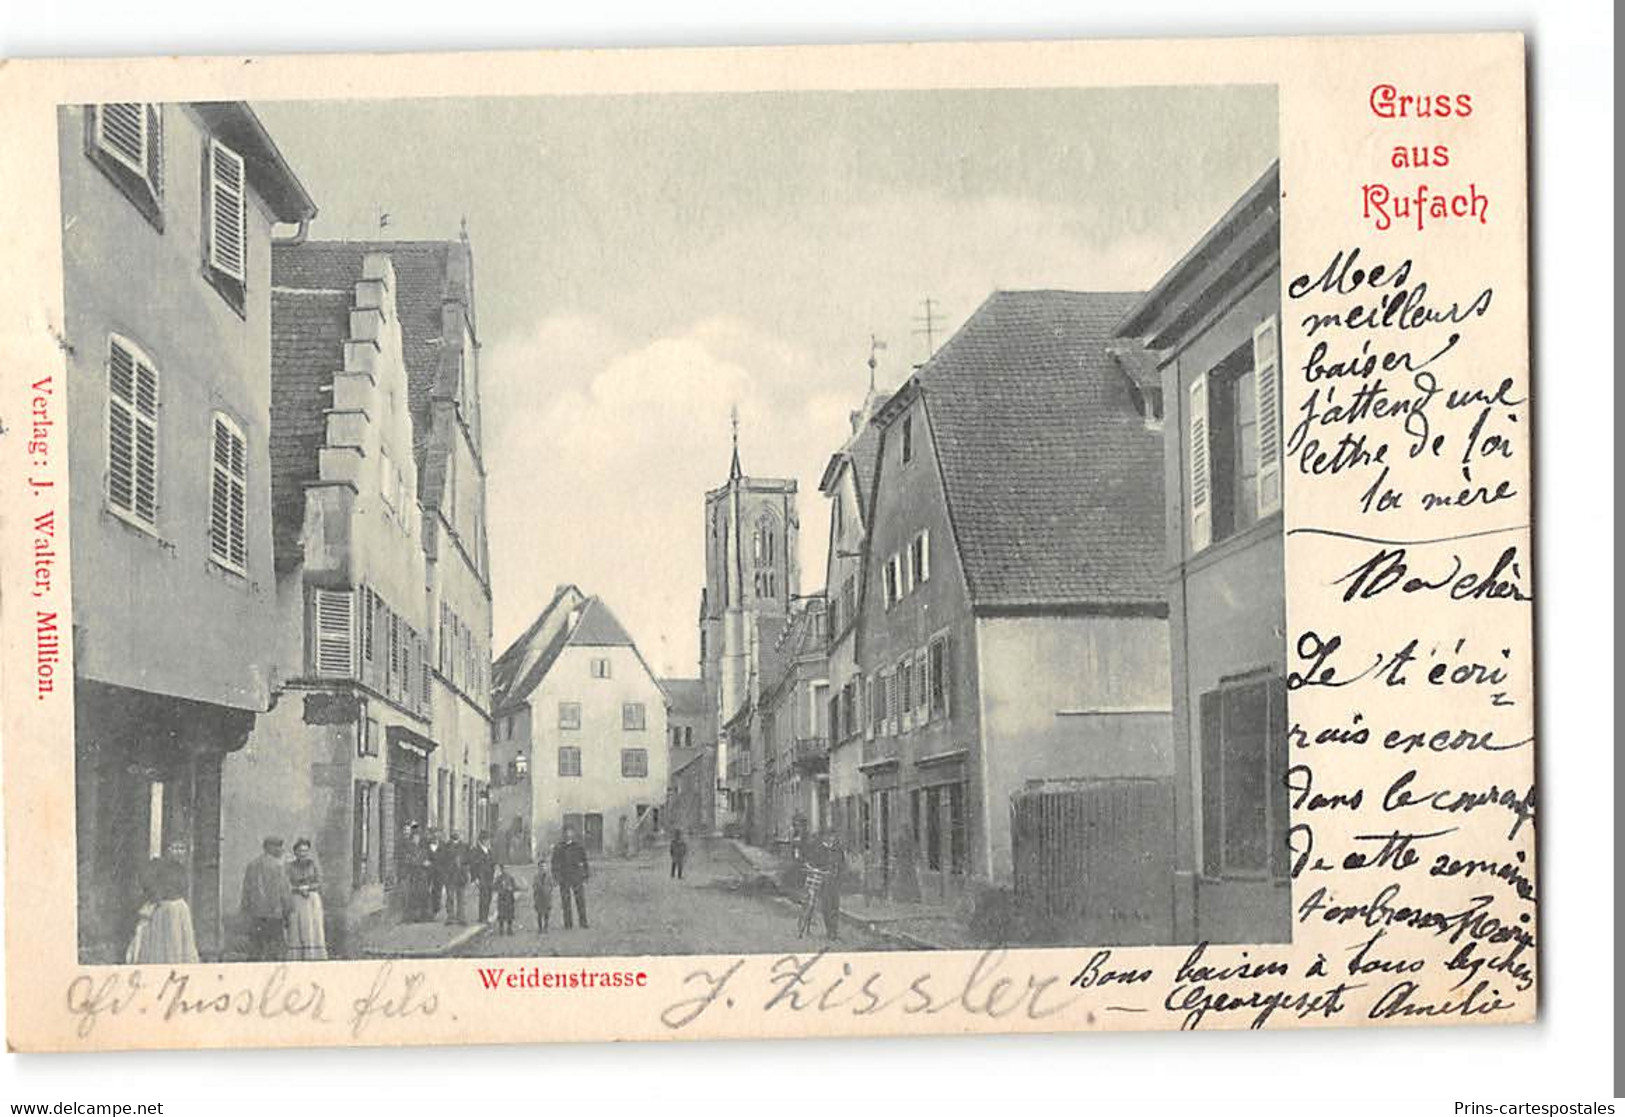 Gruss
aus
Rufach
Mes
meilleurs
baiser
j'attend une
lettre de toi
ta mère
Ma chèr
Je t'écri-
rais encore
dans le courant
de cette semaine
t'embrasse Marie
Bons baisers à tous
Georges et Amélie
Verlag: J. Walter, Million.
Weidenstrasse
Zissler fils.
J. Zissler.
www.delcampe.net
Prins-cartespostales